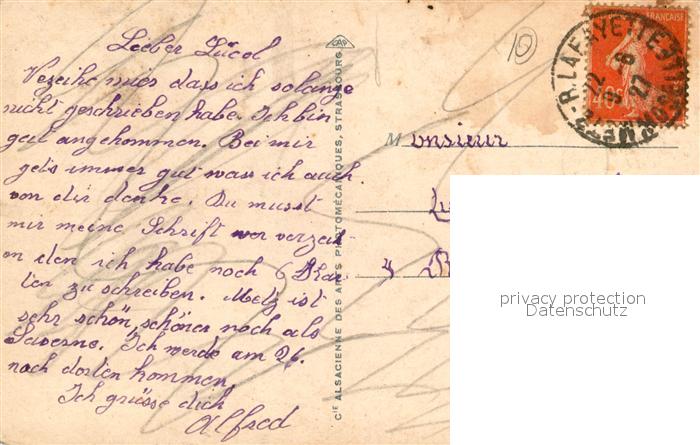 Lieber Lücol
Vezeihe mies dass ich solange
nicht geschrieben habe. Ich bin
gut angekommen. Bei mir
gets immer gut was ich auch
von dir denke. Du musst
mir meine Schrift ver verzei-
en den ich habe noch 6 Kar-
ten zu schreiben. Metz ist
sehr schön, schöner noch als
Saverne. Ich werde am 26.
nach dorten kommen.
Ich grüsse dich
Alfred
CAP
Cie ALSACIENNE DES ARTS PHOTOMÉCANIQUES, STRASBOURG
10
FRANÇAISE
40c
R. LAFAYETTE
22 - 8
27
METZ
Monsieur
privacy protection
Datenschutz